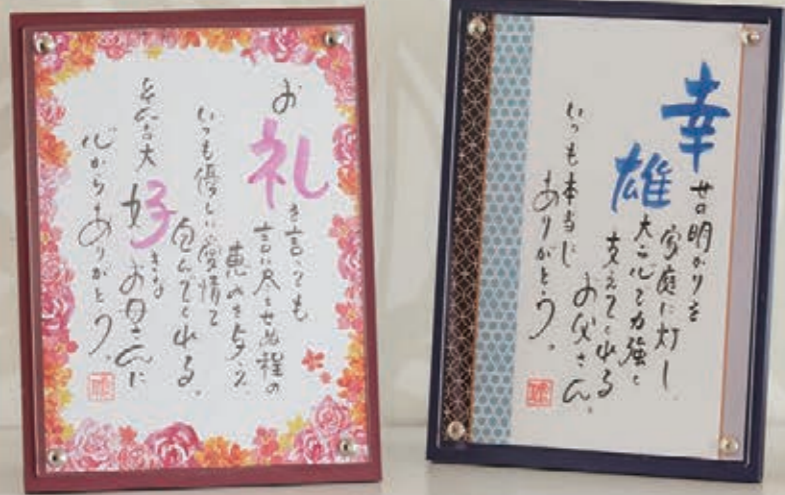 お礼を言っても
言い尽くせぬ程の
恵みを与え、
いつも優しい愛情で
包んでくれる。
そんな大好きなお母さんに
心からありがとう。
幸せの明かりを
家庭に灯し、
雄大な心で力強く
支えてくれる
お父さん。
いつも本当に
ありがとう。